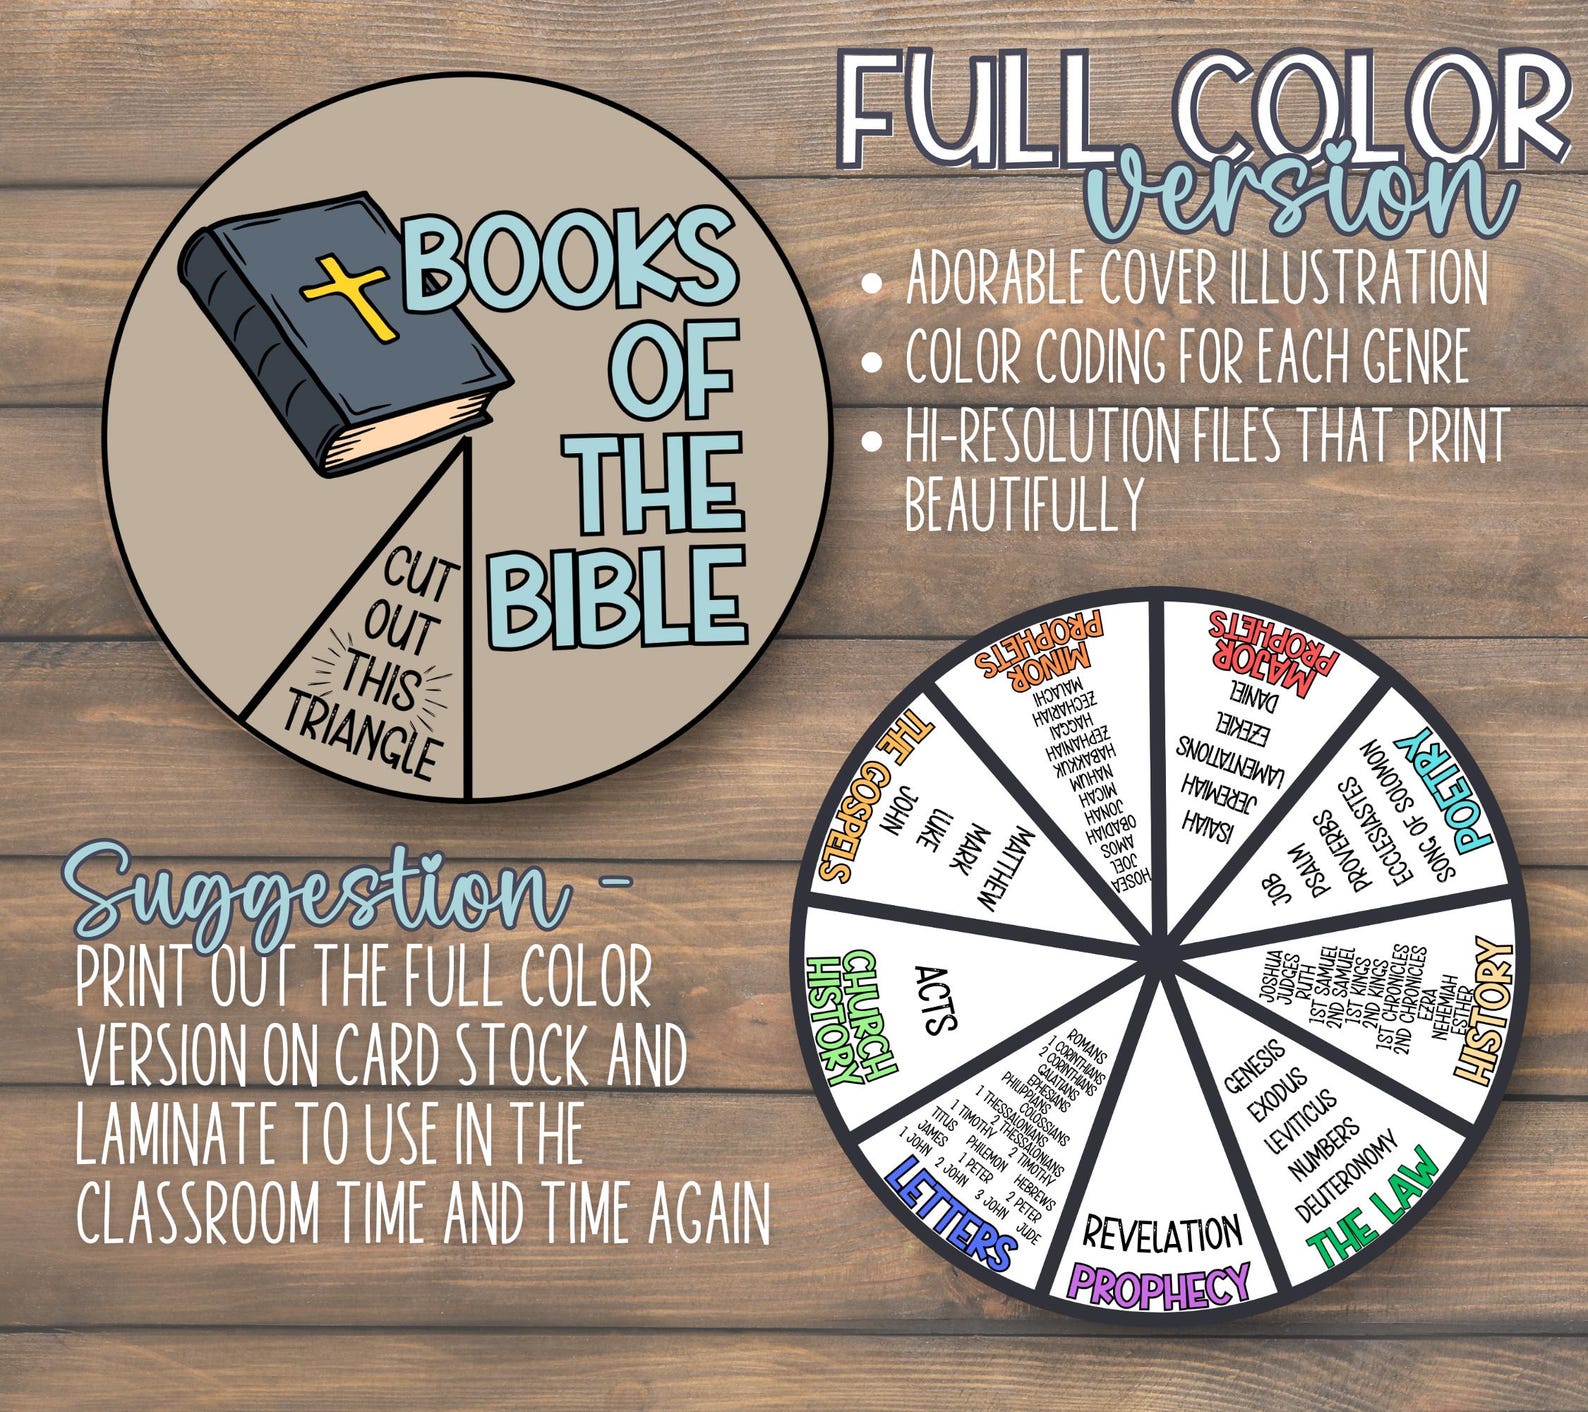 BOOKS
OF
THE
BIBLE
CUT
OUT
THIS
TRIANGLE
FULL COLOR
version
• ADORABLE COVER ILLUSTRATION
• COLOR CODING FOR EACH GENRE
• HI-RESOLUTION FILES THAT PRINT
BEAUTIFULLY
Suggestion -
PRINT OUT THE FULL COLOR
VERSION ON CARD STOCK AND
LAMINATE TO USE IN THE
CLASSROOM TIME AND TIME AGAIN
THE LAW
GENESIS
EXODUS
LEVITICUS
NUMBERS
DEUTERONOMY
HISTORY
JOSHUA
JUDGES
RUTH
1ST SAMUEL
2ND SAMUEL
1ST KINGS
2ND KINGS
1ST CHRONICLES
2ND CHRONICLES
EZRA
NEHEMIAH
ESTHER
POETRY
JOB
PSALM
PROVERBS
ECCLESIASTES
SONG OF SOLOMON
MAJOR
PROPHETS
ISAIAH
JEREMIAH
LAMENTATIONS
EZEKIEL
DANIEL
MINOR
PROPHETS
HOSEA
JOEL
AMOS
OBADIAH
JONAH
MICAH
NAHUM
HABAKKUK
ZEPHANIAH
HAGGAI
ZECHARIAH
MALACHI
THE GOSPELS
MATTHEW
MARK
LUKE
JOHN
CHURCH
HISTORY
ACTS
ROMANS
1 CORINTHIANS
2 CORINTHIANS
GALATIANS
EPHESIANS
PHILIPPIANS
COLOSSIANS
1 THESSALONIANS
2 THESSALONIANS
1 TIMOTHY 2 TIMOTHY
TITUS PHILEMON HEBREWS
JAMES 1 PETER 2 PETER
1 JOHN 2 JOHN 3 JOHN JUDE
LETTERS
REVELATION
PROPHECY